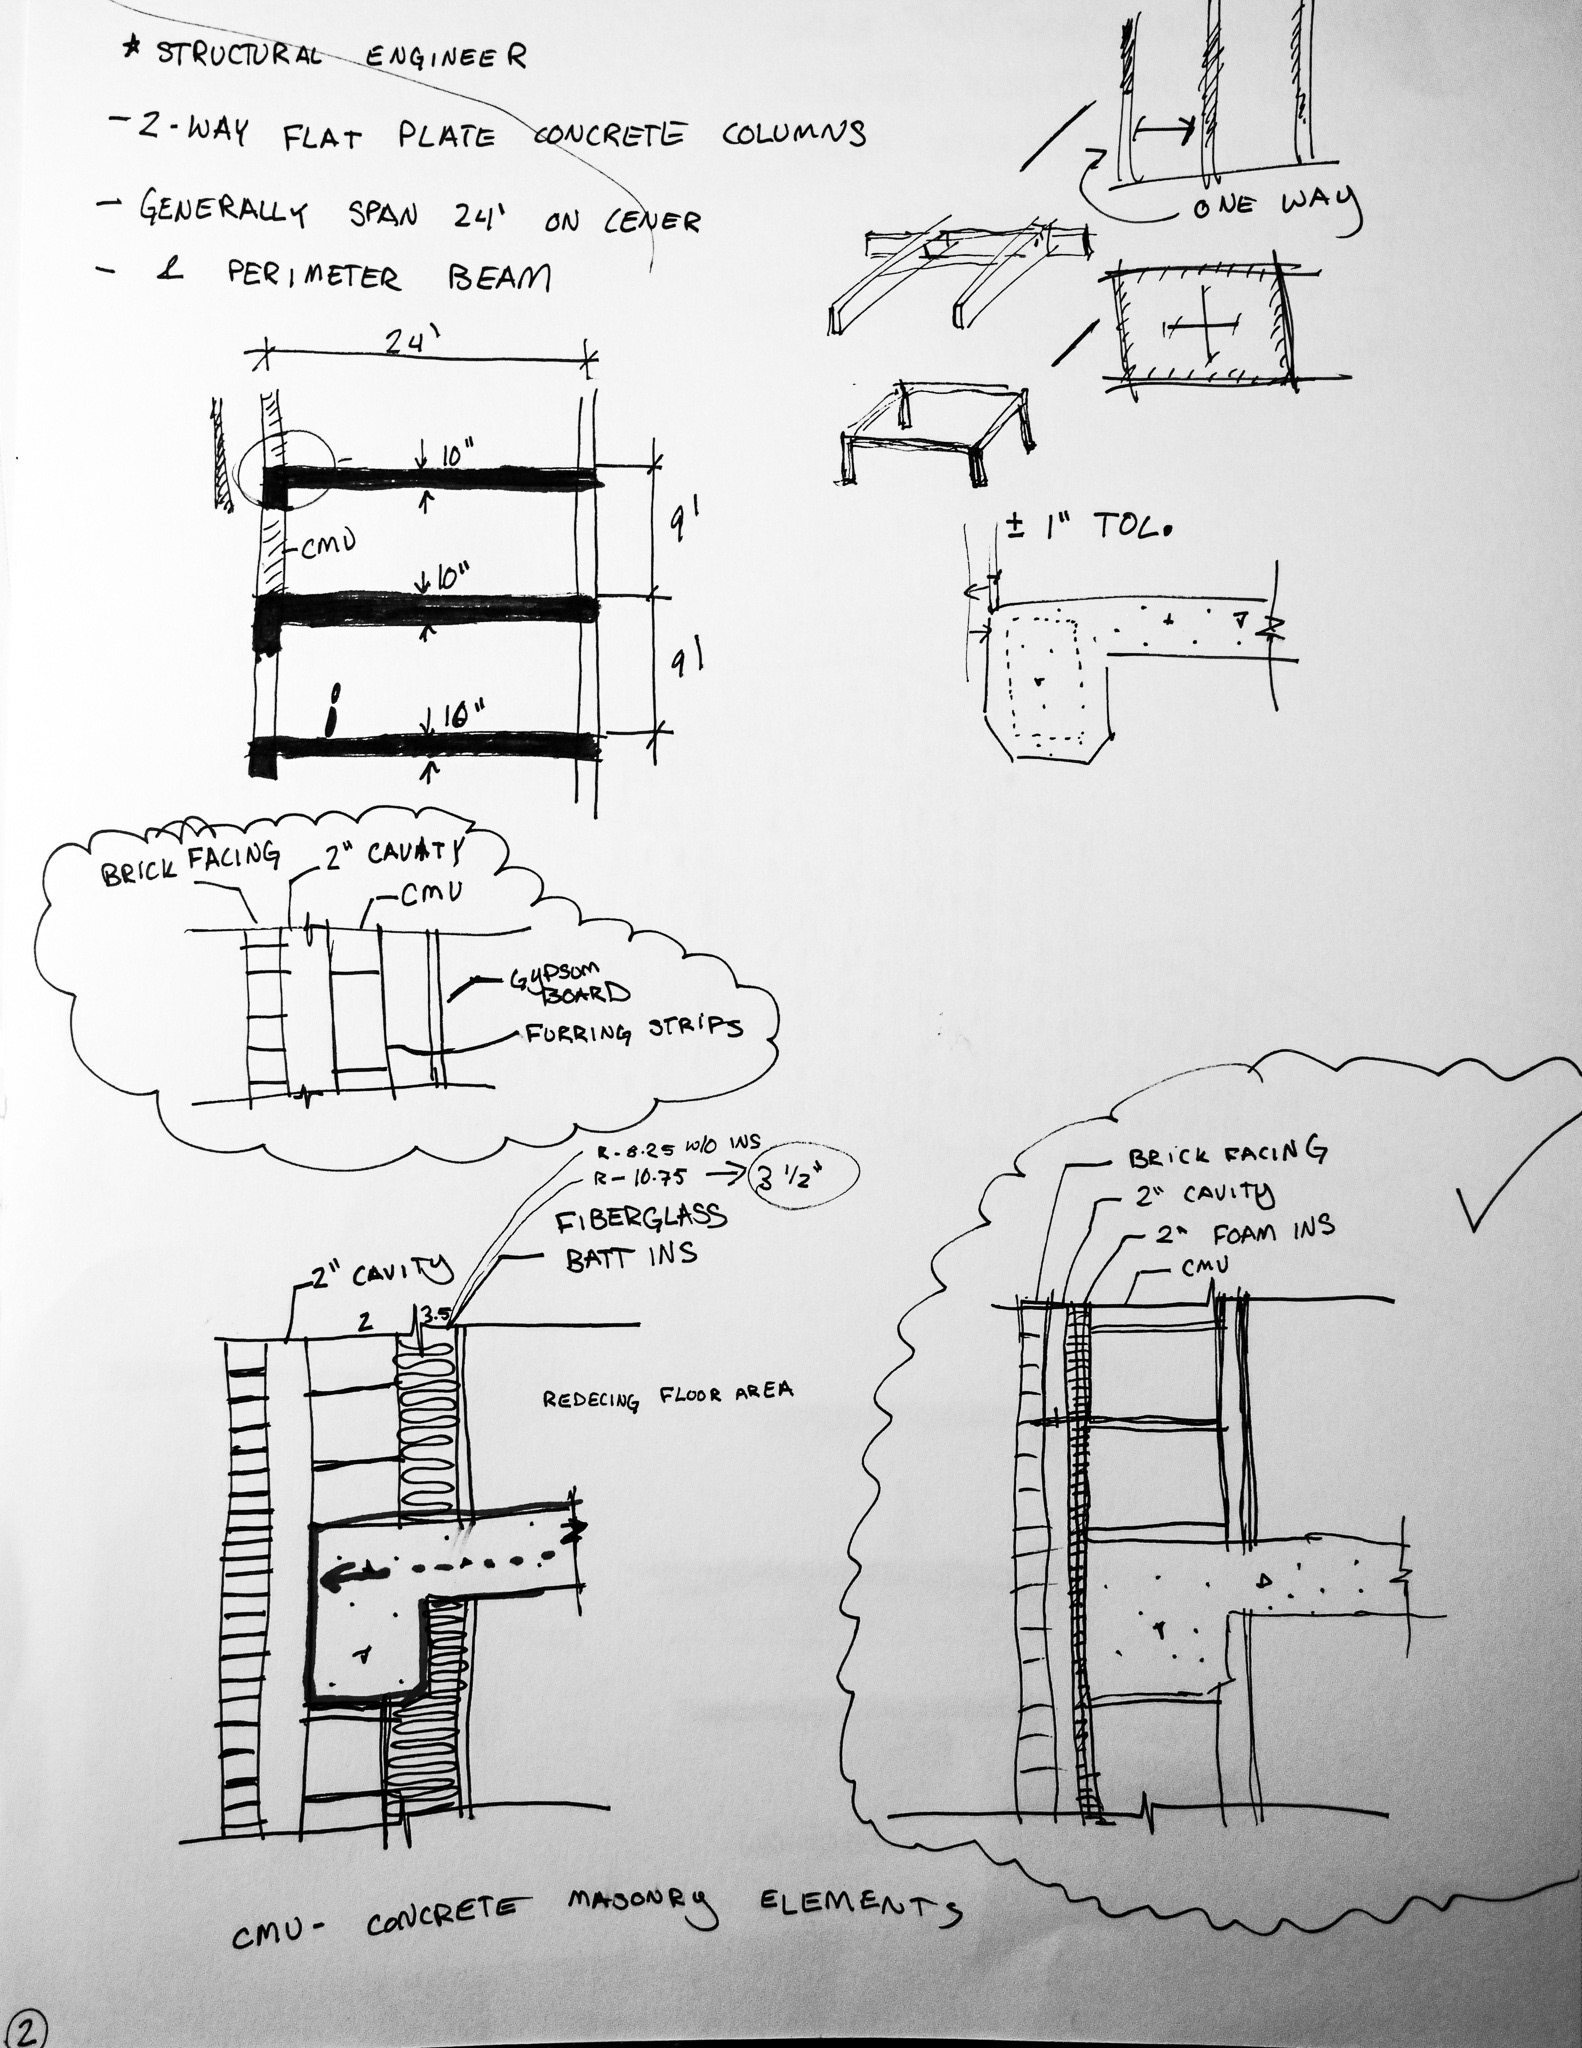 * STRUCTURAL ENGINEER
- 2-WAY FLAT PLATE CONCRETE COLUMNS
- GENERALLY SPAN 24' ON CENER
- & PERIMETER BEAM
ONE WAY
24'
10"
9'
CMU
10"
9'
10"
± 1" TOL.
BRICK FACING
2" CAVITY
CMU
GYPSUM
BOARD
FURRING STRIPS
R-8.25 W/O INS
R-10.75 → 3 1/2"
FIBERGLASS
BATT INS
2" CAVITY
2
3.5
REDECING FLOOR AREA
BRICK FACING
2" CAVITY
2" FOAM INS
CMU
CMU - CONCRETE MASONRY ELEMENTS
2